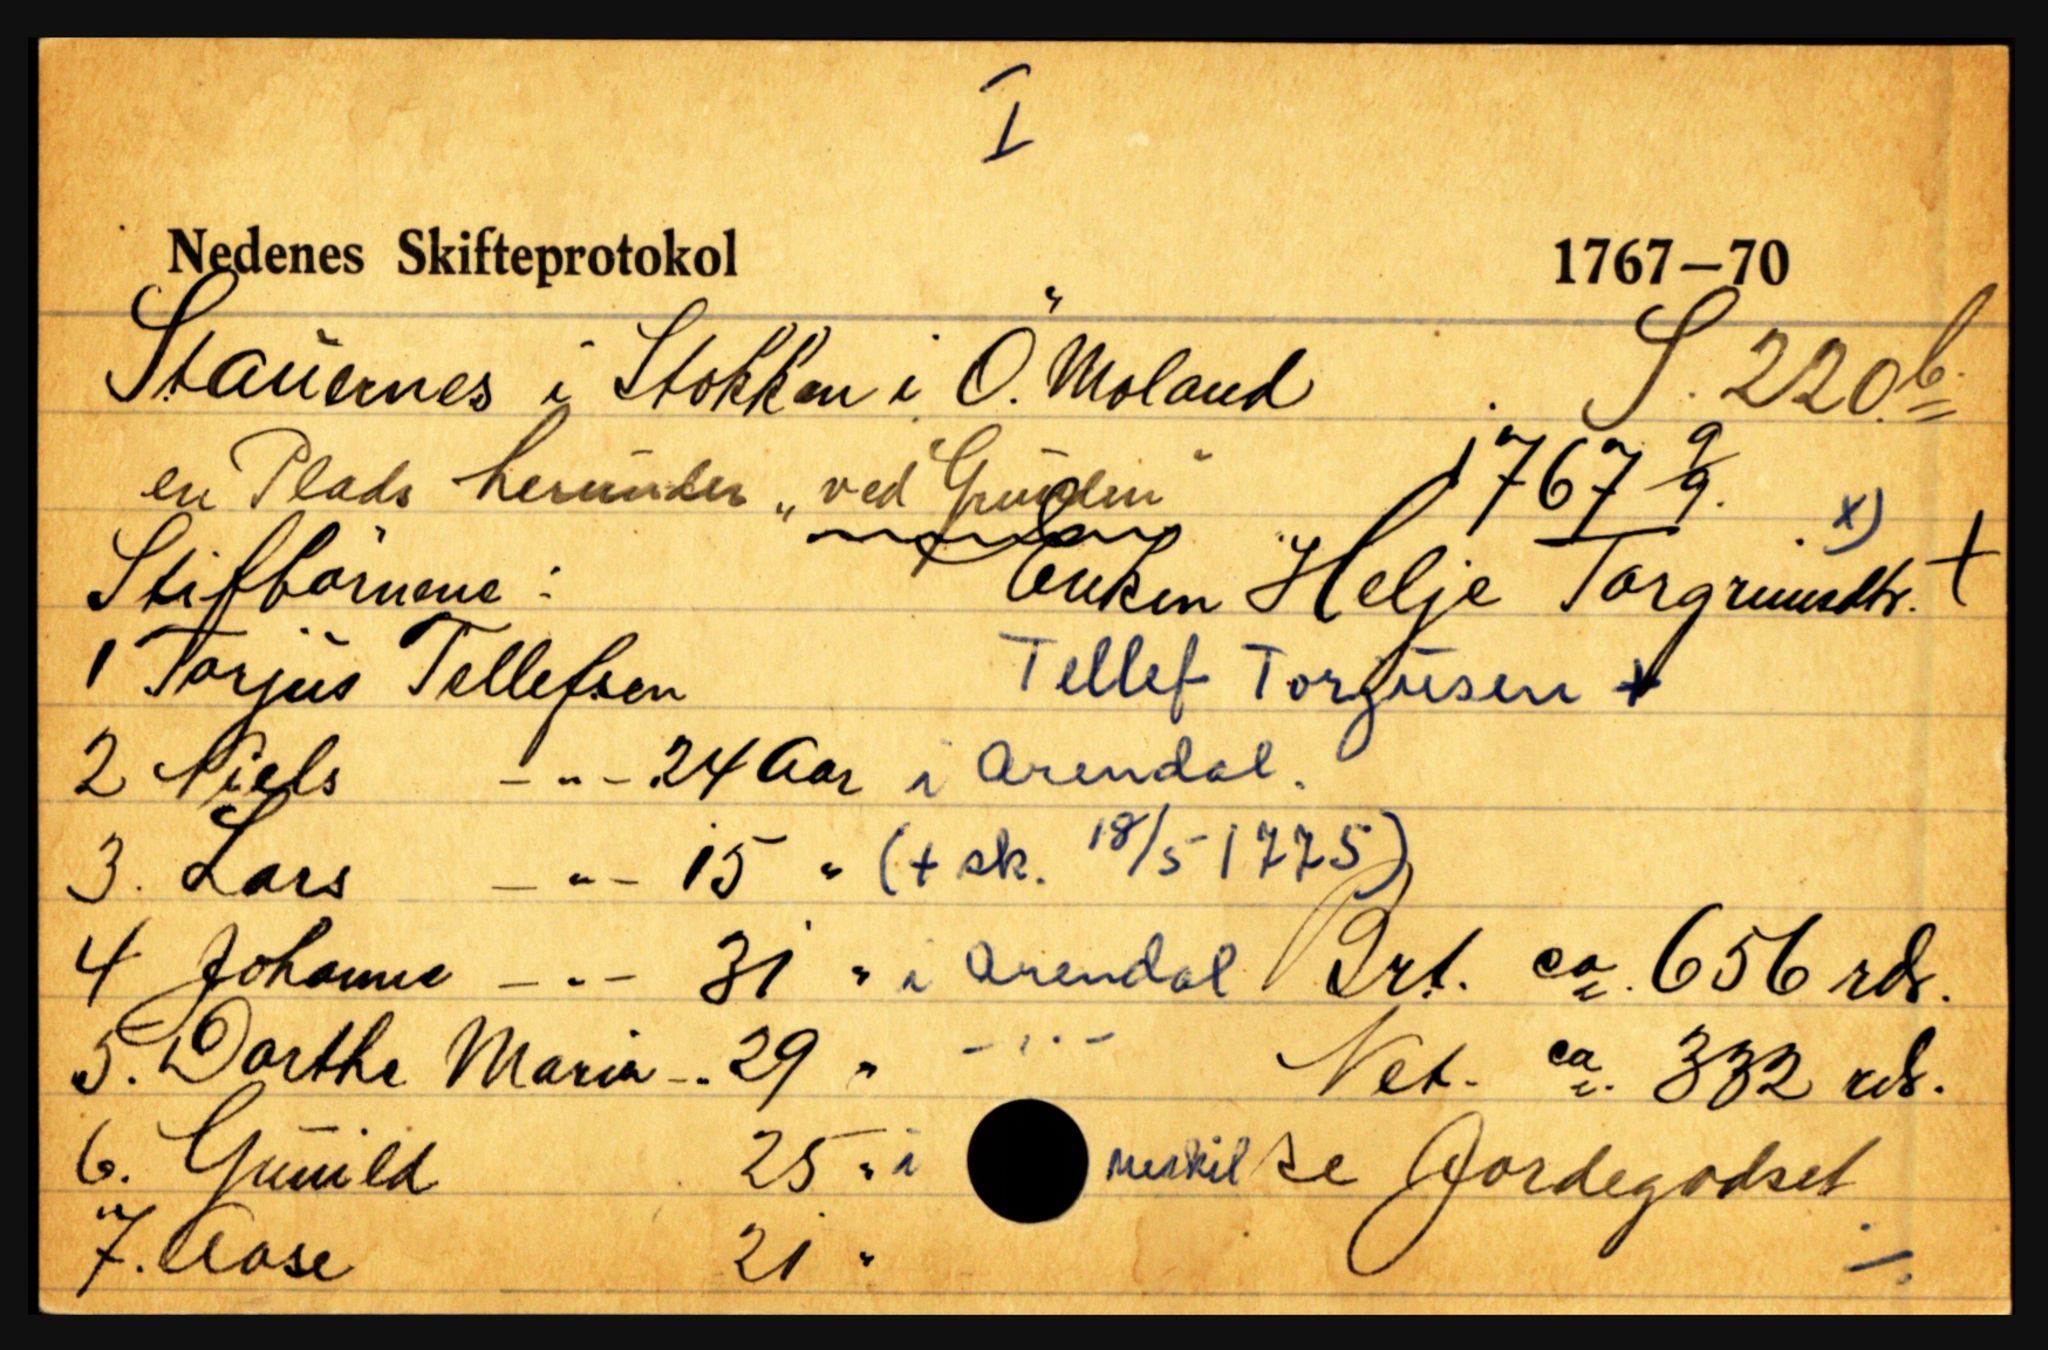 I
Nedenes Skifteprotokol 1767–70
Staŭernes i Stokken i Ö. Moland S. 220b.
en Plads herŭnder „ved Grŭnden" 1767 9/9.
Stifbörnene: Enken Helje Torgrimsdtr. x) +
1 Torjŭs Tellefsen Tellef Torjŭsen +
2 Niels -"- 24 Aar i Arendal.
3. Lars -"- 15 " (+ sk. 18/5 1775)
4 Johanne -"- 31 " i Arendal Brt. ca. 656 rdr.
5. Dorthe Maria -.. 29 " -"- Net. ca. 332 rdr.
6. Gŭnild 25 " i neskil se Jordegodset
7. Aase 21 "